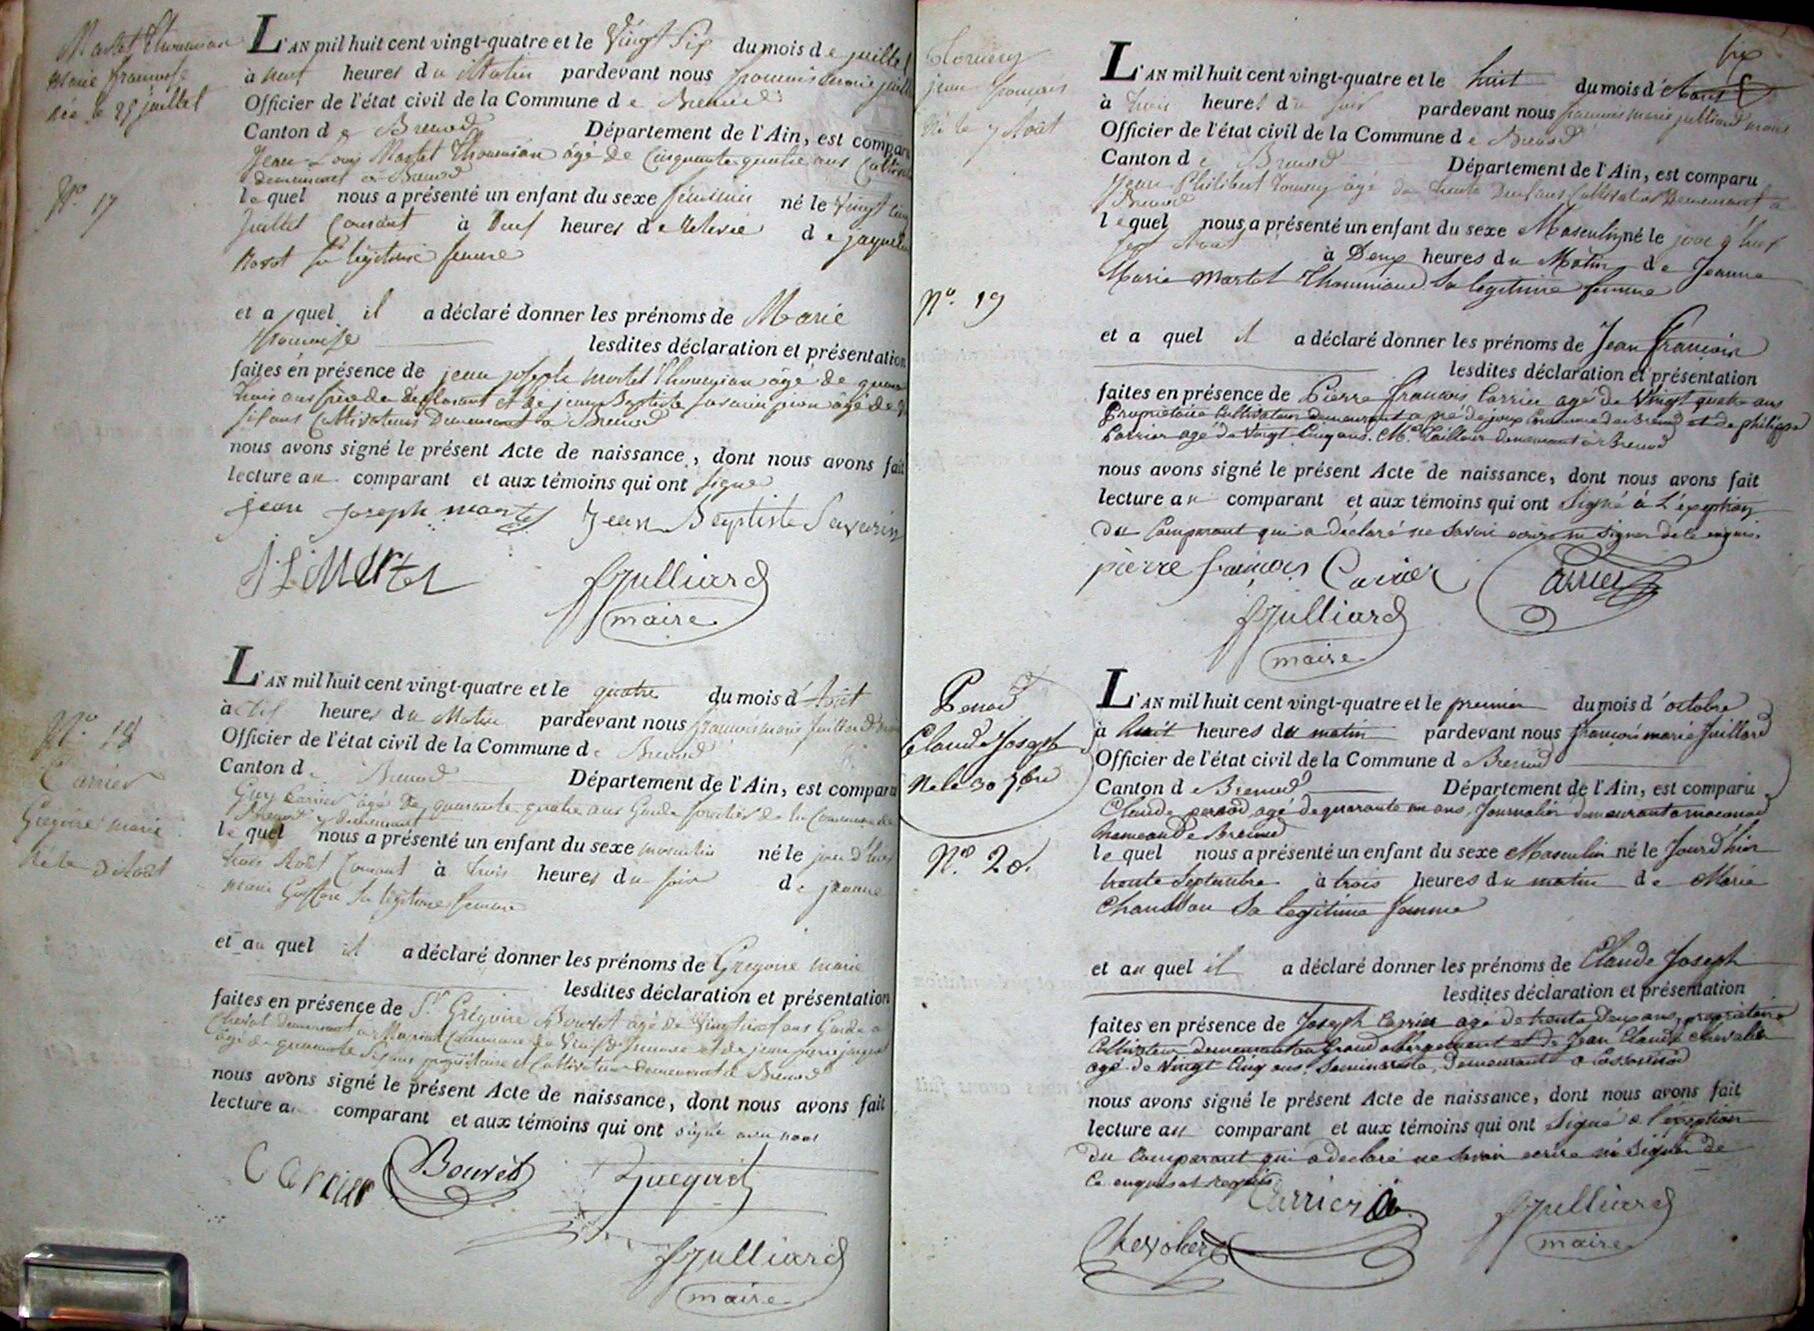 Martet Thoumian
marie françoise
née le 25 juillet
N.o 17
L'AN mil huit cent vingt-quatre et le vingt six du mois de juillet
à neuf heures du Matin pardevant nous françois marie juill
Officier de l'état civil de la Commune de Brenod
Canton de Brenod Département de l'Ain, est comparu
Jean Louis Martet Thoumian âgé de Cinquante quatre ans Cultivat
demeurant à Brenod
lequel nous a présenté un enfant du sexe féminin né le vingt cinq
juillet Courant à neuf heures de Relevée de jaqueline
sa légitime femme
et a quel il a déclaré donner les prénoms de Marie
françoise lesdites déclaration et présentation
faites en présence de jean joseph martet Thoumian âgé de quara
trois ans frère de déclarant et de jean Baptiste Savarin âgé de
six ans Cultivateurs Demeurant à Brenod
nous avons signé le présent Acte de naissance, dont nous avons fait
lecture au comparant et aux témoins qui ont signé
jean joseph martet Jean Baptiste Savarin
JL Martet fJulliard
maire
N.o 18
Carrier
Grégoire marie
né le 3 Août
L'AN mil huit cent vingt-quatre et le quatre du mois d'Août
à dix heures du Matin pardevant nous françois marie Juilliard maire
Officier de l'état civil de la Commune de Brenod
Canton de Brenod Département de l'Ain, est comparu
Guy Carrier âgé de quarante quatre ans Garde forestier de la Commune de
Brenod y demeurant
lequel nous a présenté un enfant du sexe masculin né le jour d'hier
trois Août Courant à trois heures du soir de jeanne
marie sa légitime femme
et au quel il a déclaré donner les prénoms de Grégoire marie
lesdites déclaration et présentation
faites en présence de S.r Grégoire Bouvet âgé de vingt ans Garde a
Cheval demeurant à Commune de et de jean
âgé de quarante six ans propriétaire et Cultivateur demeurant à Brenod
nous avons signé le présent Acte de naissance, dont nous avons fait
lecture a comparant et aux témoins qui ont signé avec nous
Carrier Bouvet Jacquet
fJulliard
maire
Tomeny
jean françois
né le 7 Août
N.o 19
L'AN mil huit cent vingt-quatre et le huit du mois d'Aout
à trois heures du soir pardevant nous francois marie julliard maire
Officier de l'état civil de la Commune de Brenod
Canton de Brenod Département de l'Ain, est comparu
Jean Philibert Tomeny âgé de trente Deux ans Cultivateur Demeurant à
Brenod
lequel nous a présenté un enfant du sexe Masculin né le jour d'hier
sept Aout à Deux heures du Matin de Jeanne
Marie Martet Thoumian Sa legitime femme
et a quel il a déclaré donner les prénoms de Jean François
lesdites déclaration et présentation
faites en présence de Pierre françois Carrier agé de vingt quatre ans
Propriétaire Cultivateur demeurant a Commune de Brenod et de philippe
Carrier agé de vingt Cinq ans. M.e Tailleur demeurant à Brenod
nous avons signé le présent Acte de naissance, dont nous avons fait
lecture au comparant et aux témoins qui ont Signé à L'exeption
du Comparant qui a déclaré ne savoir ecrire ni Signer de ce enquis.
pierre françois Carrier Carrier
fJulliard
maire
Penod
Claude Joseph
Né le 30 7bre
N.o 20.
L'AN mil huit cent vingt-quatre et le premier du mois d'octobre
à huit heures du matin pardevant nous françois marie Juillard
Officier de l'état civil de la Commune de Brenod
Canton de Brenod Département de l'Ain, est comparu
Claude penod, agé de quarante un ans, Journalier demeurant a maconod
hameau de Brenod
lequel nous a présenté un enfant du sexe Masculin né le Jour d'hier
trente Septembre à trois heures du matin de Marie
Chandon Sa legitime femme
et au quel il a déclaré donner les prénoms de Claude Joseph
lesdites déclaration et présentation
faites en présence de Joseph Carrier agé de trente Deux ans, propriétaire
Cultivateur demeurant au Grand abergement et de Jean Claude Chevalier
agé de vingt Cinq ans. Seminariste, Demeurant a
nous avons signé le présent Acte de naissance, dont nous avons fait
lecture au comparant et aux témoins qui ont signé a l'exeption
du Comparant qui a declaré ne savoir ecrire ni Signer de
Ce enquis et requis
Carrier fJulliard
Chevalier maire